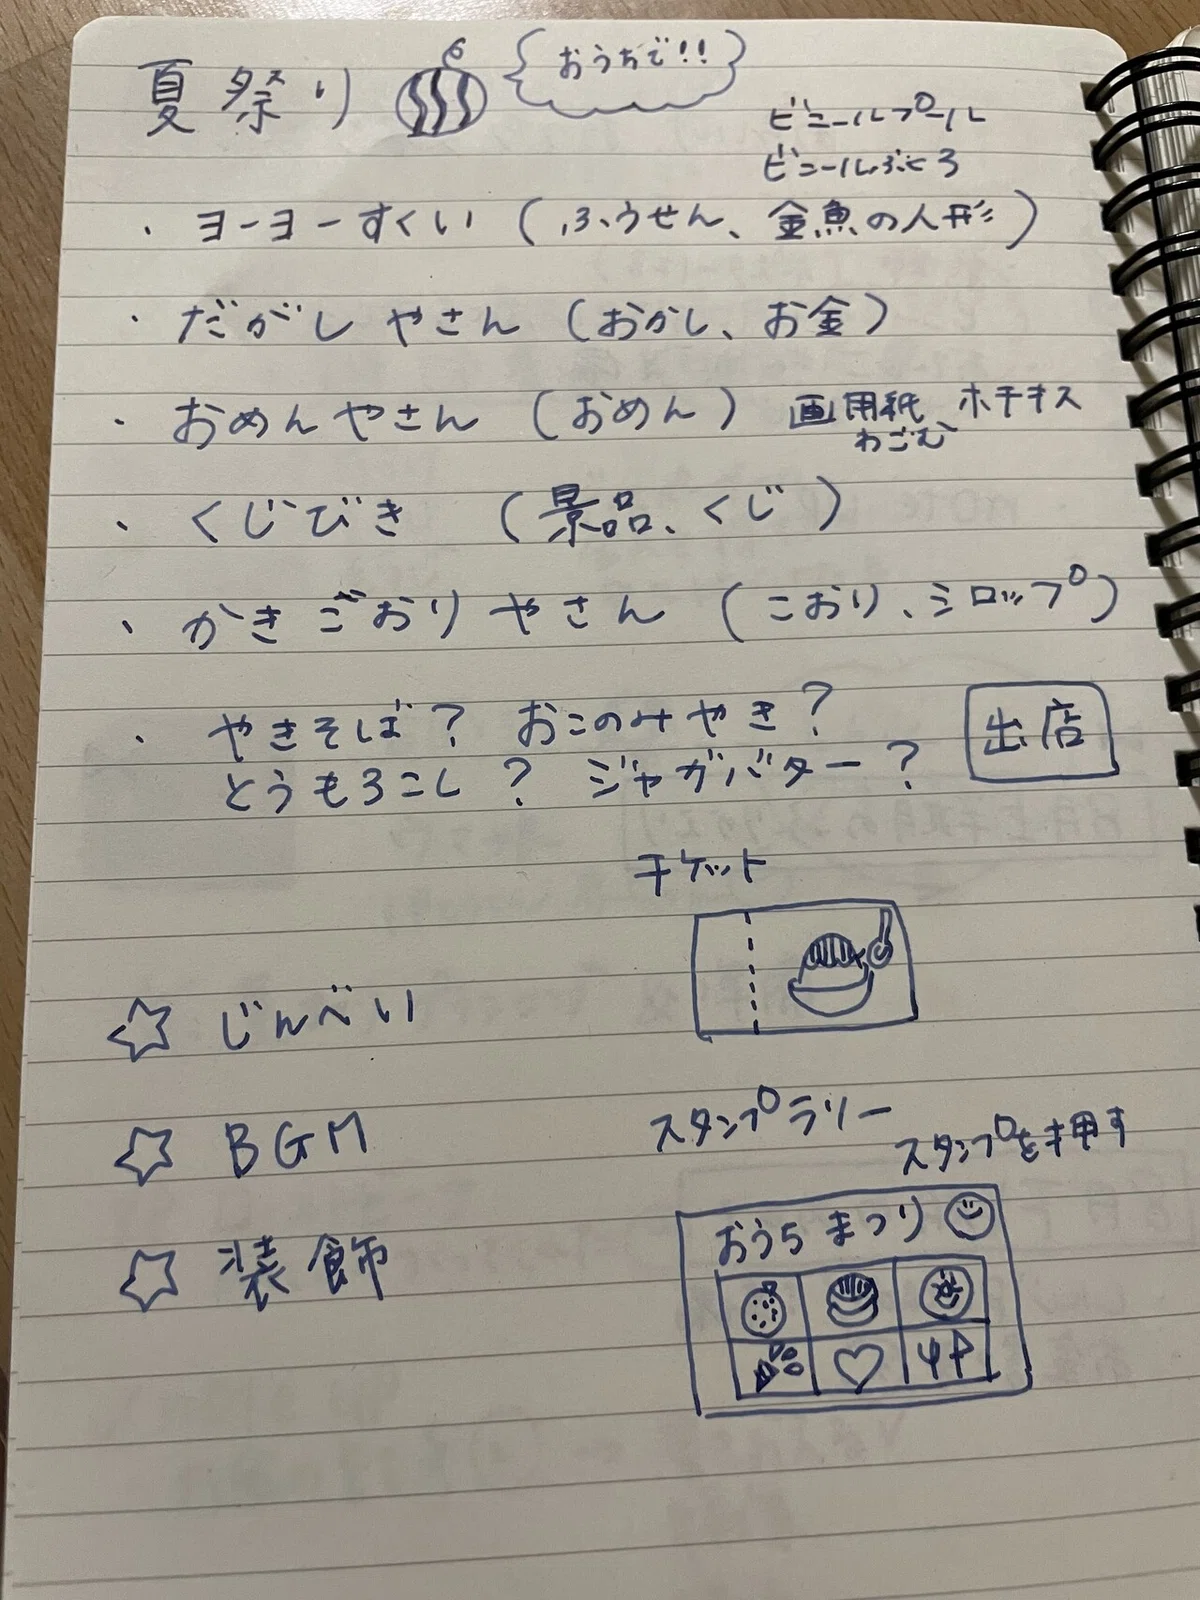 夏祭り
おうちで!!
ビニールプール
ビニールぶくろ
・ヨーヨーすくい (ふうせん、金魚の人形)
・だがしやさん (おかし、お金)
・おめんやさん (おめん) 画用紙 ホチキス
わごむ
・くじびき (景品、くじ)
・かきごおりやさん (こおり、シロップ)
・やきそば? おこのみやき?
とうもろこし? ジャガバター?
出店
チケット
☆ じんべい
☆ BGM
スタンプラリー
スタンプを押す
☆ 装飾
おうちまつり